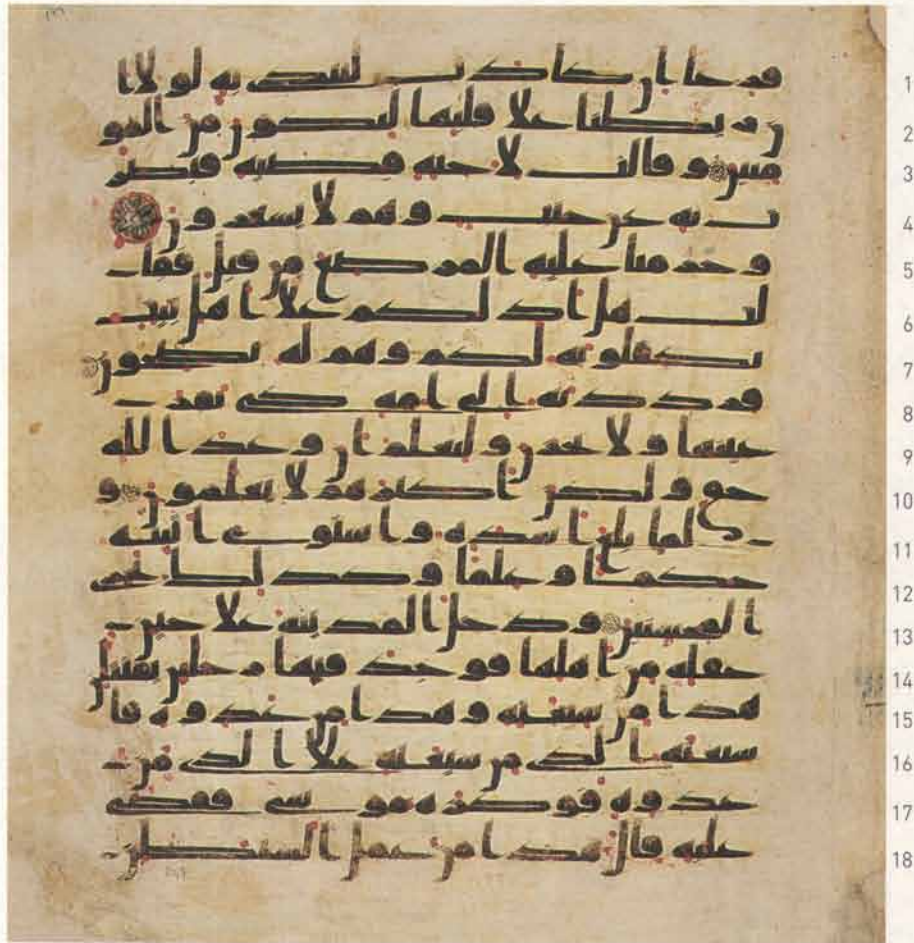 فرغا ان كادت لتبدى به لولا ا 1
ن ربطنا علا قلبها لتكون من المو 2
منين وقالت لاخته قصيه فبصر 3
ت به عن جنب وهم لا يشعرون 4
وحرمنا عليه المرضع من قبل فقا 5
لت هل ادلكم علا اهل بيت 6
يكفلونه لكم وهم له نصحون 7
فرددنه الى امه كى تقر 8
عينها ولا تحزن ولتعلم ان وعد الله 9
حق ولكن اكثرهم لا يعلمون و 10
لما بلغ اشده واستوى اتينه 11
حكما وعلما وكذلك نجزى 12
المحسنين ودخل المدينه علا حين 13
غفله من اهلها فوجد فيها رجلين يقتتلن 14
هذا من شيعته وهذا من عدوه فا 15
ستغثه الذى من شيعته علا الذى من 16
عدوه فوكزه موسى فقضى 17
عليه قال هذا من عمل الشيطن 18